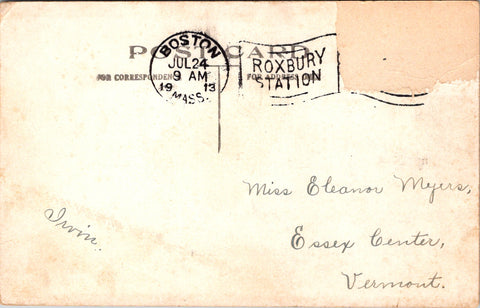 POST CARD
FOR CORRESPONDENCE
FOR ADDRESS
BOSTON
JUL 24
9 AM
19 13
MASS.
ROXBURY
STATION
Miss Eleanor Myers,
Essex Center,
Vermont.
Irvin.